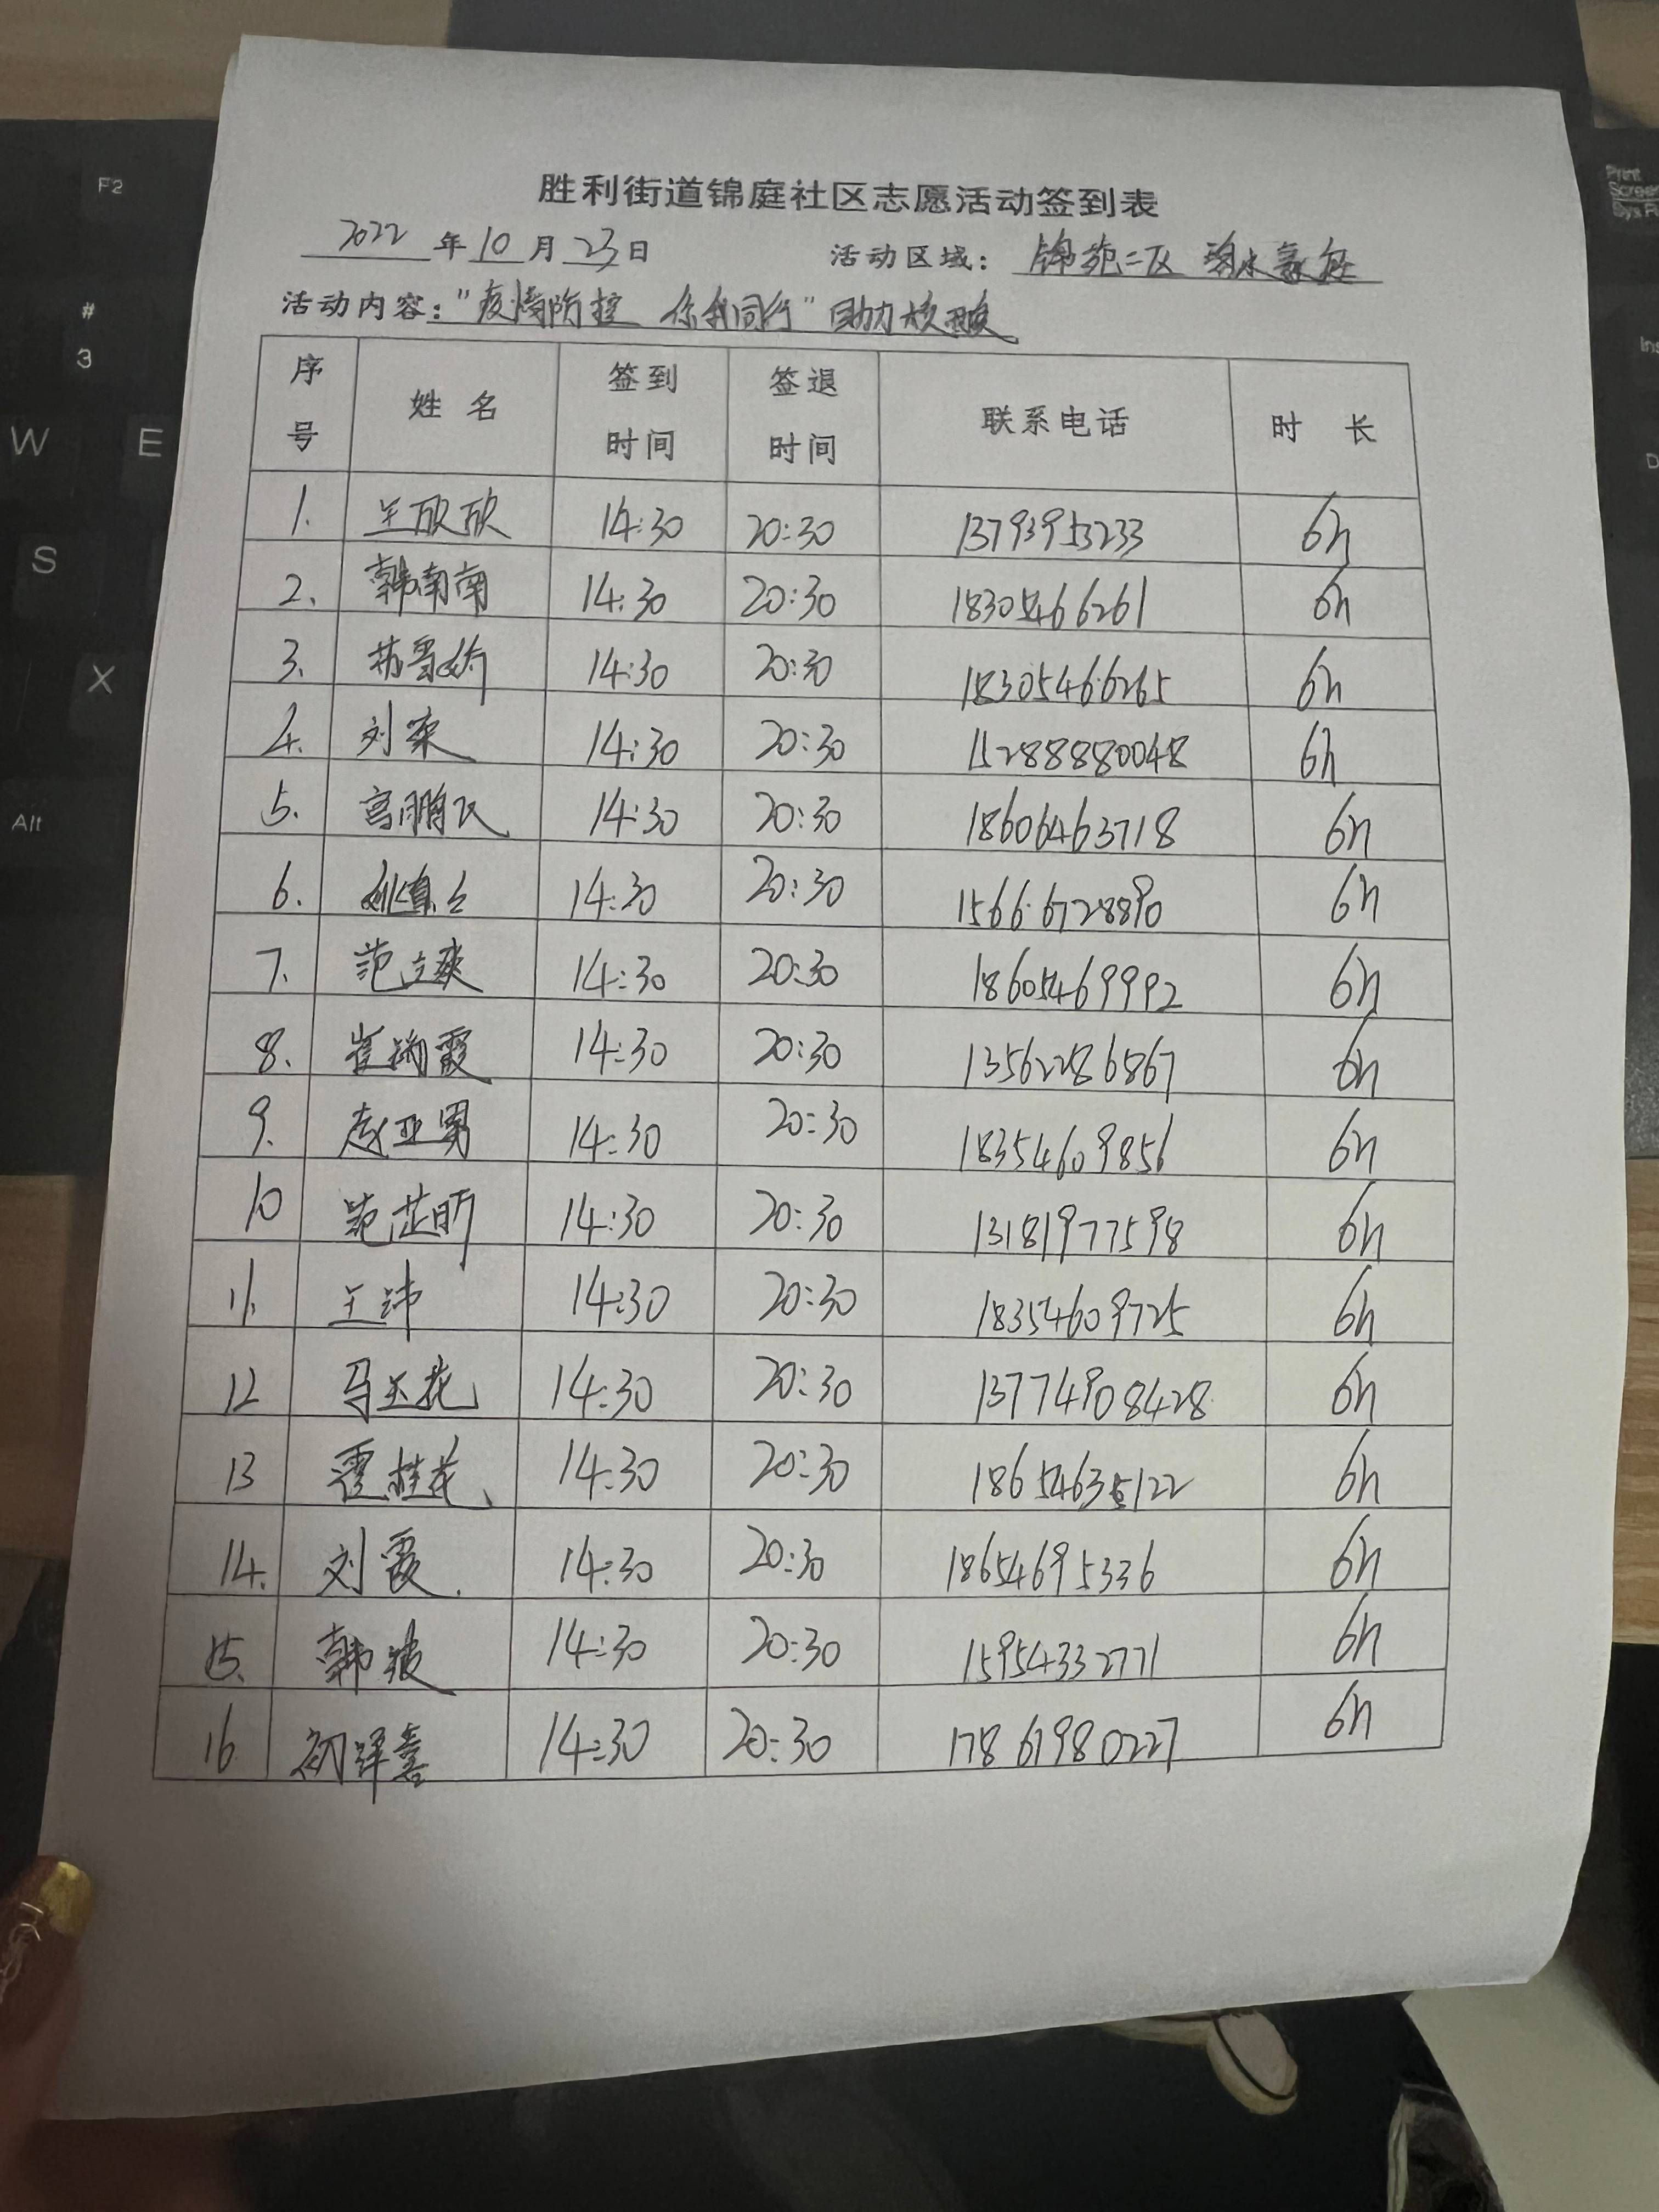 胜利街道锦庭社区志愿活动签到表
2022 年 10 月 23 日 活动区域: 锦苑二区
活动内容: "疫情防控 你我同行" 助力核酸
序号 姓名 签到时间 签退时间 联系电话 时 长
1. 王欣欣 14:30 20:30 13793953233 6h
2. 韩南南 14:30 20:30 18305466261 6h
3. 14:30 20:30 18305466265 6h
4. 刘荣 14:30 20:30 15288880048 6h
5. 宫鹏飞 14:30 20:30 18606463718 6h
6. 14:30 20:30 15666728890 6h
7. 范立爽 14:30 20:30 18605469992 6h
8. 崔瑞霞 14:30 20:30 13562286867 6h
9. 赵亚男 14:30 20:30 18354609856 6h
10 范芷昕 14:30 20:30 13181977598 6h
11. 王沛 14:30 20:30 18354609725 6h
12 马玉花 14:30 20:30 13774908428 6h
13 霍桂花 14:30 20:30 18654635122 6h
14. 刘霞 14:30 20:30 18654695336 6h
15. 韩波 14:30 20:30 15954332771 6h
16 14:30 20:30 17861980227 6h
F2
#
3
W
E
S
X
Alt
Print
Screen